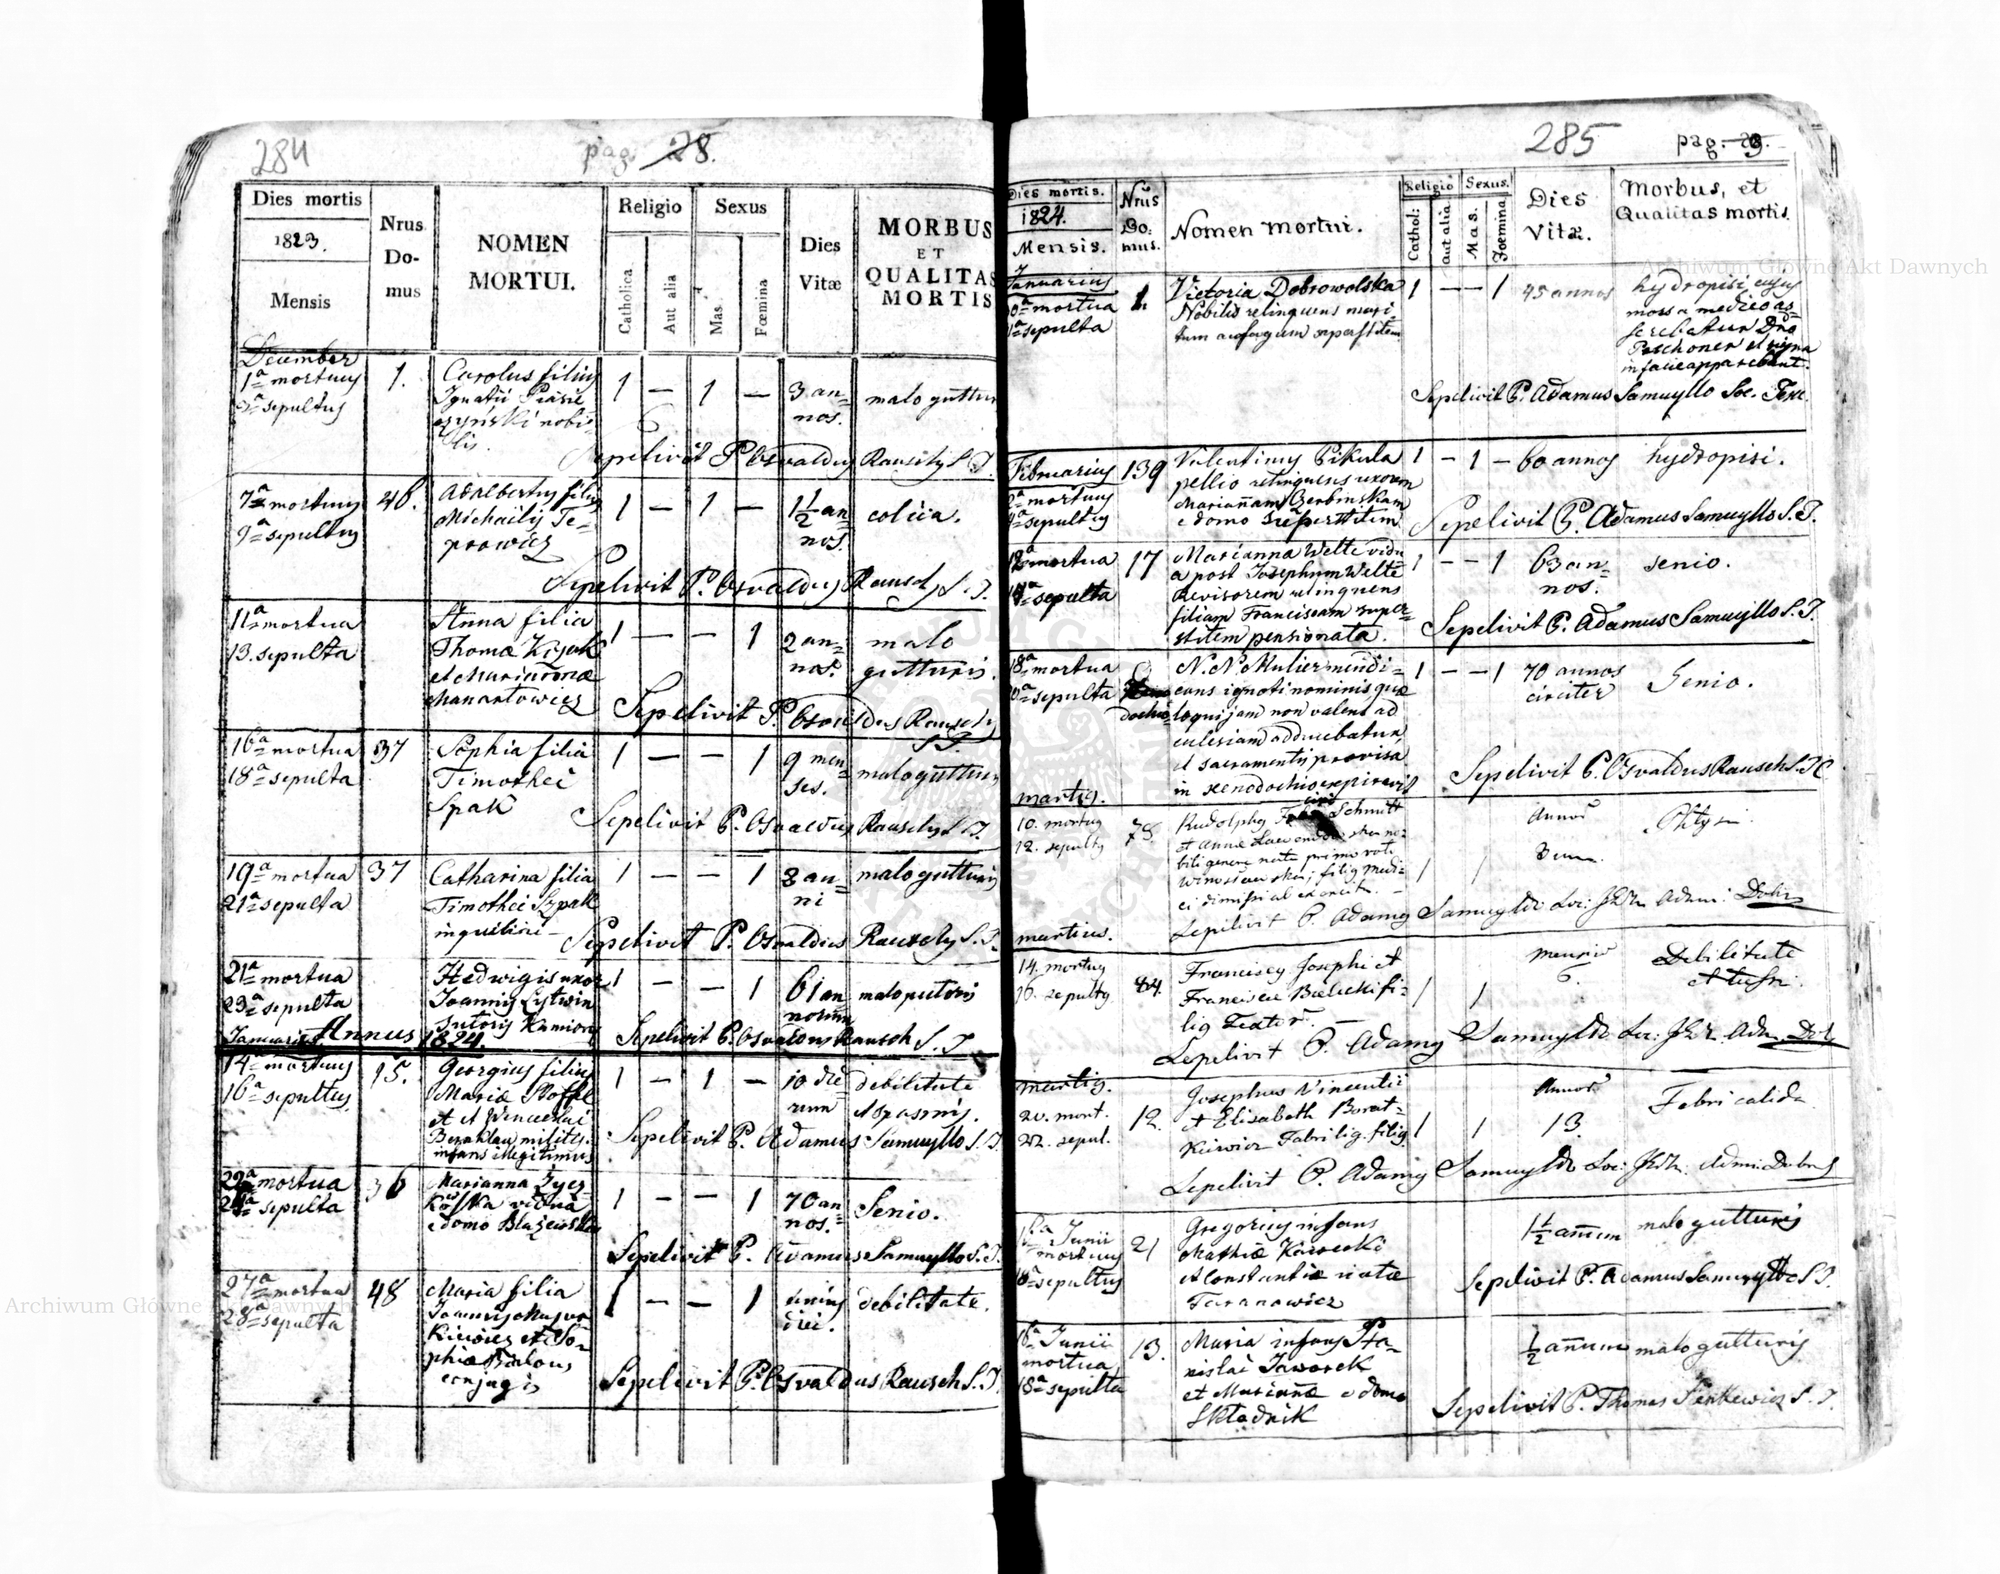 284
pag. 28.
Dies mortis
1823.
Mensis
Nrus
Do-
mus
NOMEN
MORTUI.
Religio
Catholica
Aut alia
Sexus
Mas.
Fœmina
Dies
Vitæ
MORBUS
ET
QUALITAS
MORTIS
December
1a mortuus
3a sepultus
1.
Carolus filius
Ignatii
nobi-
lis.
1 — 1 —
3 an-
nos.
malo guttur
Sepelivit P. Osvaldus Rausch S. J.
7a mortuus
9a sepultus
46.
Adalbertus filius
Michaelis Te-
prowicz
1 — 1 —
1½ an-
nos.
colica.
Sepelivit P. Osvaldus Rausch S. J.
11a mortua
13. sepulta
Anna filia
Thomæ
et Mariannæ
Manartowicz
1 — — 1
2 an-
nos.
malo
gutturis.
Sepelivit P. Osvaldus Rausch
S. J.
16a mortua
18a sepulta
37
Sophia filia
Timothei
Spak
1 — — 1
9 men-
ses.
malo guttur
Sepelivit P. Osvaldus Rausch S. J.
19a mortua
21a sepulta
37
Catharina filia
Timothei Szpak
inquilini
1 — — 1
2 an-
ni
malo gutturis
Sepelivit P. Osvaldus Rausch S. J.
21a mortua
23a sepulta
Hedwigis uxor
Joannis Lytwin
sutoris
1 — — 1
61 an
norum
malo
Sepelivit P. Osvaldus Rausch S. J.
Januarius Annus 1824.
14a mortuus
16a sepultus
15.
Georgius filius
Mariæ
et Wenceslai
militis.
infans illegitimus
1 — 1 —
10 die
rum
debilitate
et spasmis.
Sepelivit P. Adamus Samuyllo S. J.
22a mortua
24a sepulta
36
Marianna
vidua
e domo Błażewska
1 — — 1
70 an
nos.
Senio.
Sepelivit P. Adamus Samuyllo S. J.
27a mortua
28a sepulta
48
Maria filia
Joannis
et So-
phiæ Białous
conjugis
1 — — 1
unius
diei.
debilitate.
Sepelivit P. Osvaldus Rausch S. J.
285
pag. 29.
Dies mortis.
1824.
Mensis.
Nrus
Do-
mus.
Nomen mortui.
Religio
Cathol:
aut alia
Sexus.
Mas.
Foemina
Dies
Vitæ.
Morbus, et
Qualitas mortis.
Januarius
mortua
sepulta
1.
Victoria Dobrowolska
Nobilis relinquens mari-
tum superstitem
1 — — 1
45 annos
hydropisi cujus
mors a medico as-
serebatur Dno
et signa
in facie apparebant.
Sepelivit P. Adamus Samuyllo Soc. Jesu.
Februarius
2a mortuus
4a sepultus
139
Valentinus Pikula
pellio relinquens uxorem
Mariannam
e domo superstitem
1 — 1 —
60 annos
hydropisi.
Sepelivit P. Adamus Samuyllo S. J.
12a mortua
14a sepulta
17
Marianna Welte vidu
a post Josephum Welte
Revisorem relinquens
filiam Franciscam super-
stitem pensionata.
1 — — 1
63 an-
nos.
senio.
Sepelivit P. Adamus Samuyllo S. J.
18a mortua
20a sepulta
dochio
N. N. Mulier mendi-
cans ignoti nominis quæ
loqui jam non valens ad
ecclesiam adducebatur,
et sacramentis provisa
in xenodochio expiravit
1 — — 1
70 annos
circiter
Senio.
Sepelivit P. Osvaldus Rausch S. J.
martis.
10. mortuus
12. sepultus
78.
Rudolphus Schmitt
et Annæ
primo voto
filius medi-
ci dimissi ab exercitu. —
1 1
Annor
Sepelivit P. Adamus Samuyllo Soc: Adm:
martius.
14. mortuus
16. sepultus
84.
Franciscus Josephi et
Franciscæ Bielicki fi-
lius Textor. —
1 1
mensiu
6.
Debilitate
et tussi.
Sepelivit P. Adamus Samuyllo Soc: Adm.
martis.
20. mort.
22. sepul.
12.
Josephus Vincentii
et Elisabeth
Fabri lig. filius
1 1
Annor
13.
Febri calida
Sepelivit P. Adamus Samuyllo Soc: Adm:
16a Junii
mortuus
18a sepultus
21
Gregorius infans
Mathiæ
et Constantiæ natæ
Taranowicz
1½ annum
malo gutturis
Sepelivit P. Adamus Samuyllo S J.
16a Junii
mortua
18a sepulta
13.
Maria infans Sta-
nislai Jaworek
et Mariannæ e domo
Składnik
½ annum
malo gutturis
Sepelivit P. Thomas S. J.
Archiwum Główne Akt Dawnych
Archiwum Główne Akt Dawnych